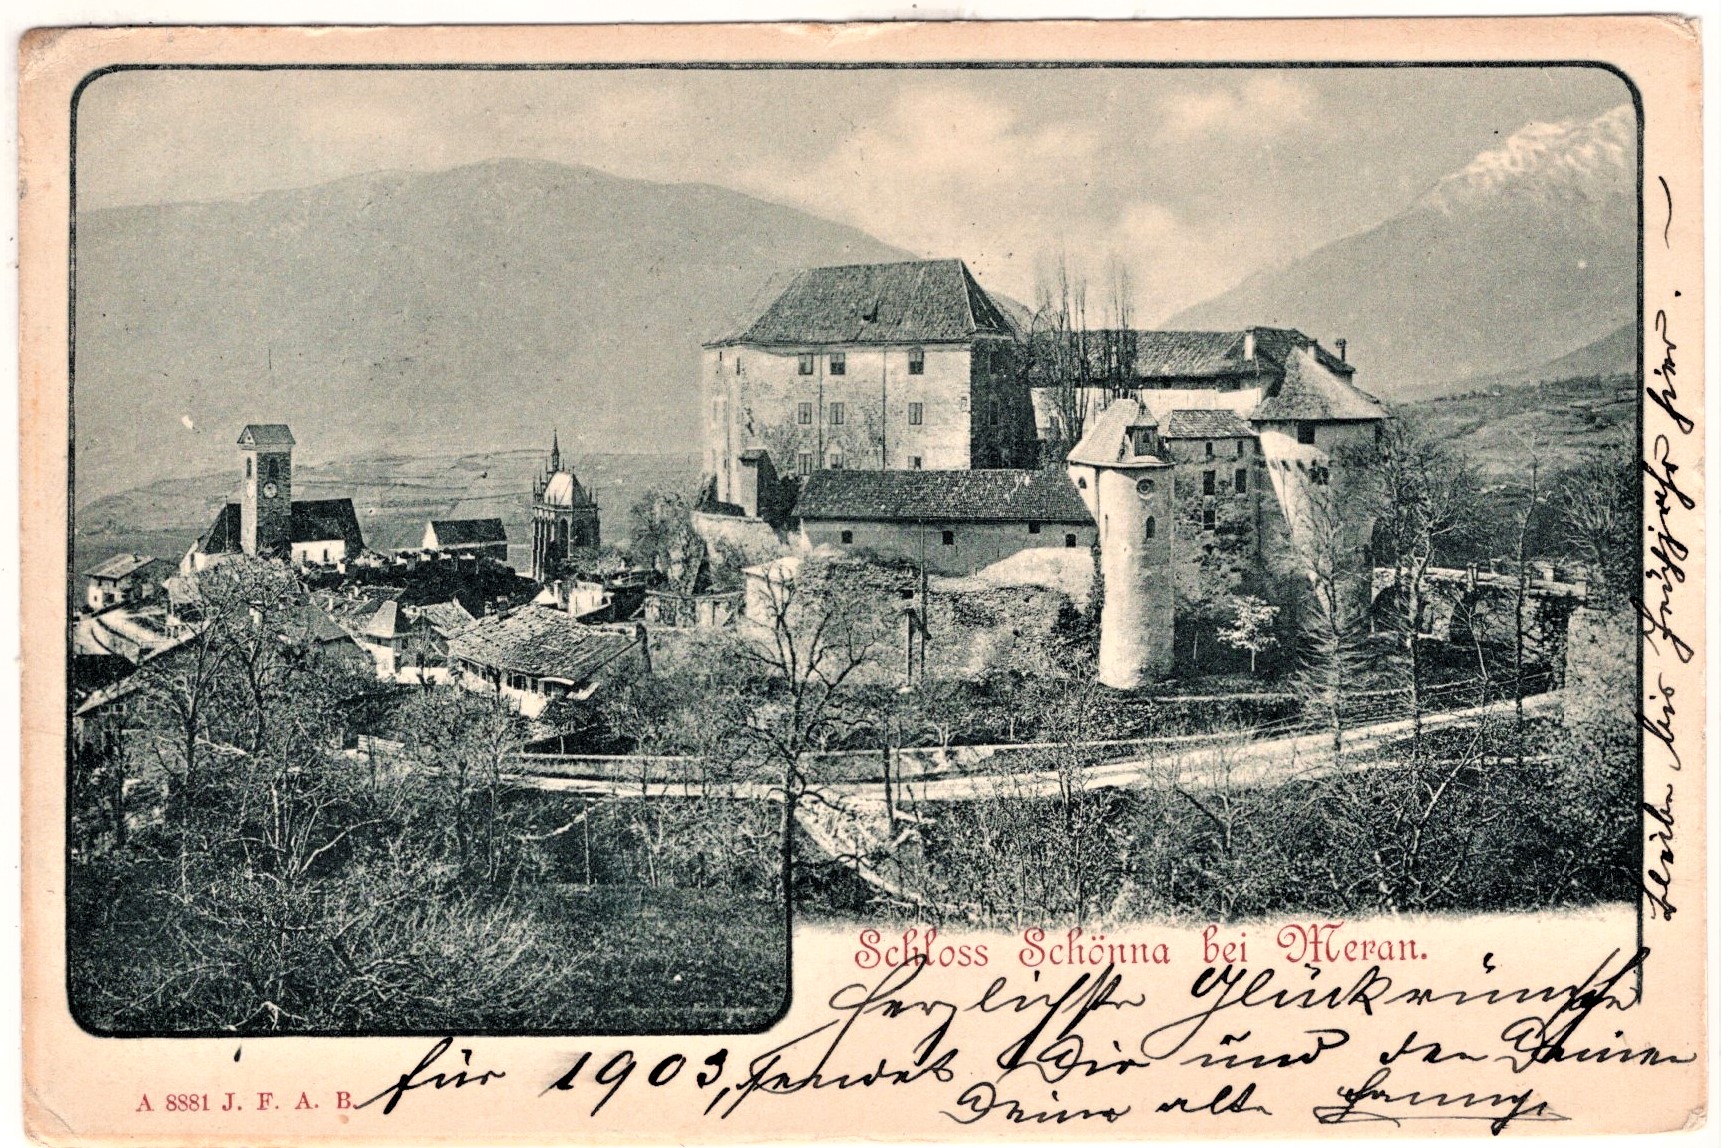 Schloss Schönna bei Meran.
Herzlichste Glückwünsche
für 1903, sendet Dir und den Deinen
Deine alte
Bleibe bis Frühjahr hier.
A 8881 J. F. A. B.